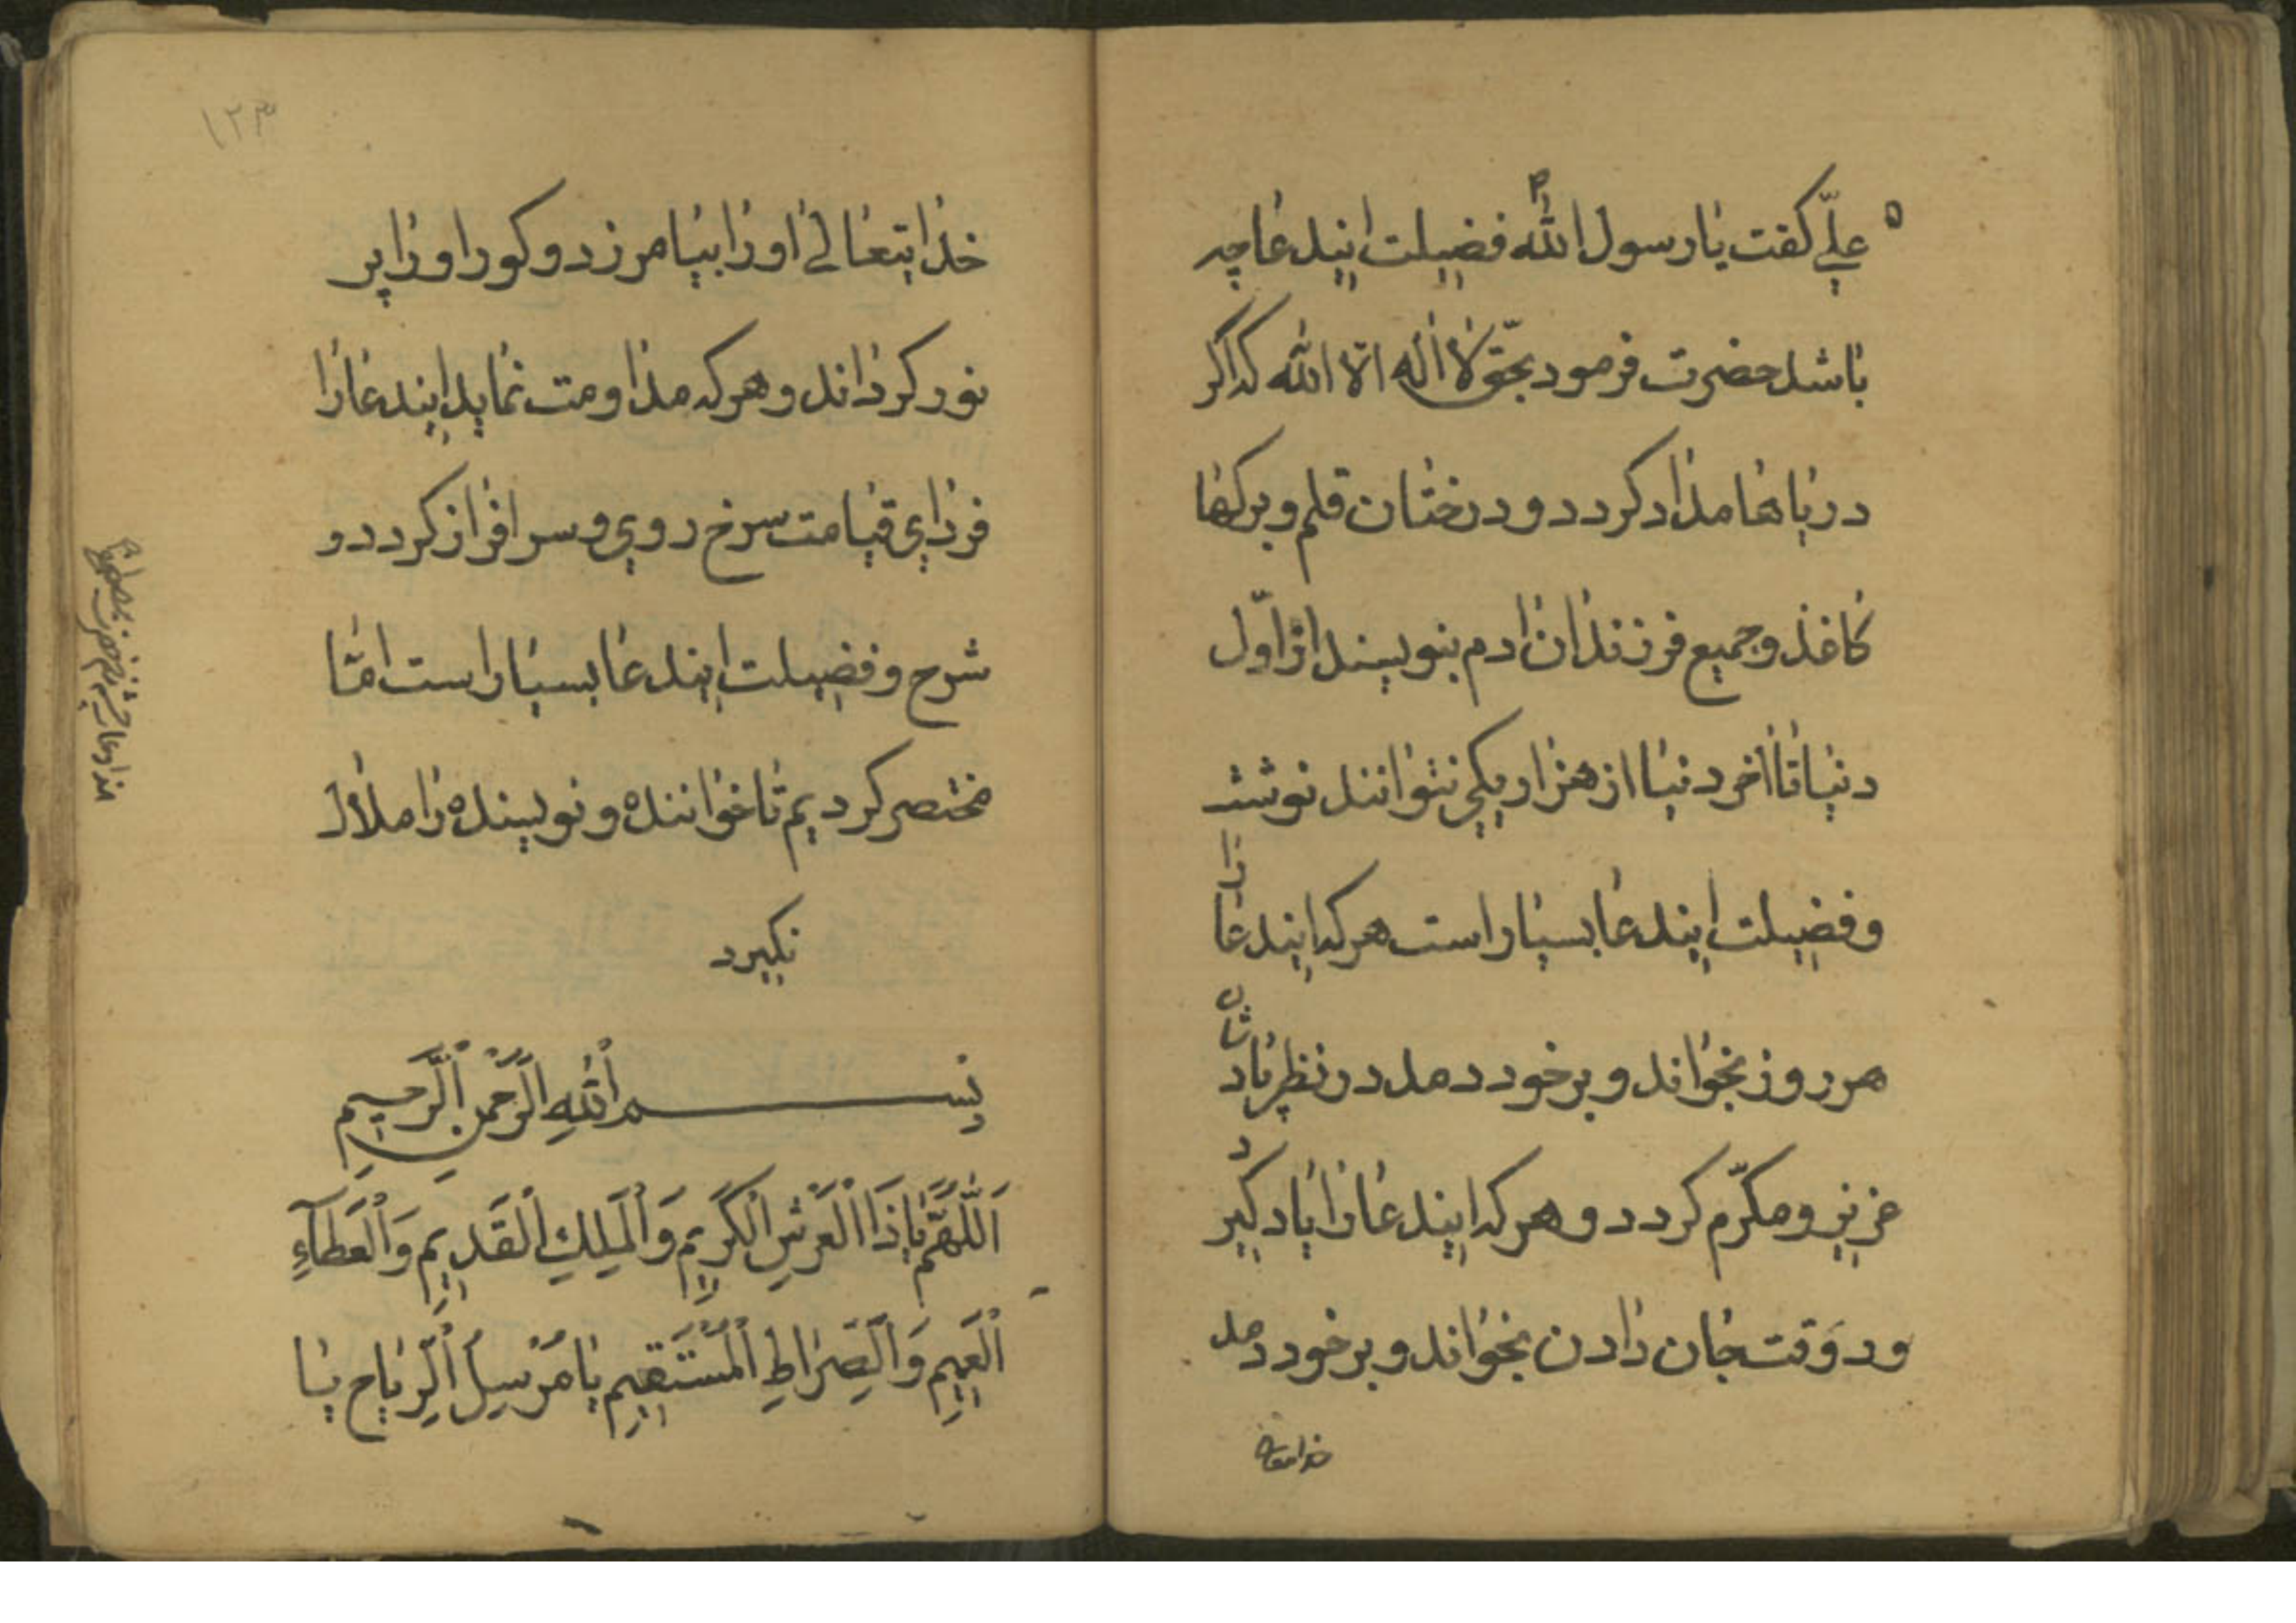 علي كفت يا رسول الله فضيلت ايندعا چه
باشد حضرت فرمود بحق لا اله الا الله كه اكر
درياها مداد كردد و درختان قلم و بركها
كاغذ و جميع فرزندان ادم بنويسند از اول
دنيا تا اخر دنيا از هزار يكي نتوانند نوشت
و فضيلت ايندعا بسيار است هر كه ايندعا را
هر روز بخواند و بر خود دمد در نظر پادشاهان
عزيز و مكرّم كردد و هر كه ايندعا را ياد كيرد
و در وقت جان دادن بخواند و بر خود دمد
خدايتعالى
١٢٣
خدايتعالى او را بيامرزد و كور او را پر
نور كرداند و هر كه مداومت نمايد ايندعا را
فرداي قيامت سرخ روي و سرافراز كردد و
شرح و فضيلت ايندعا بسيار است امّا
مختصر كرديم تا خواننده و نويسنده را ملال
نكيرد
بِسْمِ اللهِ الرَّحْمنِ الرَّحِيمِ
اَللّهُمَّ يا ذَا الْعَرْشِ الْكَرِيمِ وَالْمُلكِ الْقَدِيمِ وَالْعَطآءِ
الْعَمِيمِ وَالصِّرَاطِ الْمُسْتَقِيمِ يا مُرْسِلَ الرِّياحِ يا